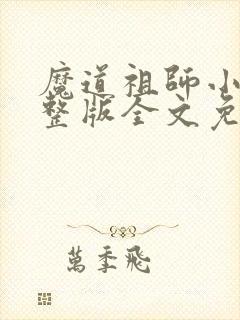 魔道祖師小
整版全文免
萬季飛